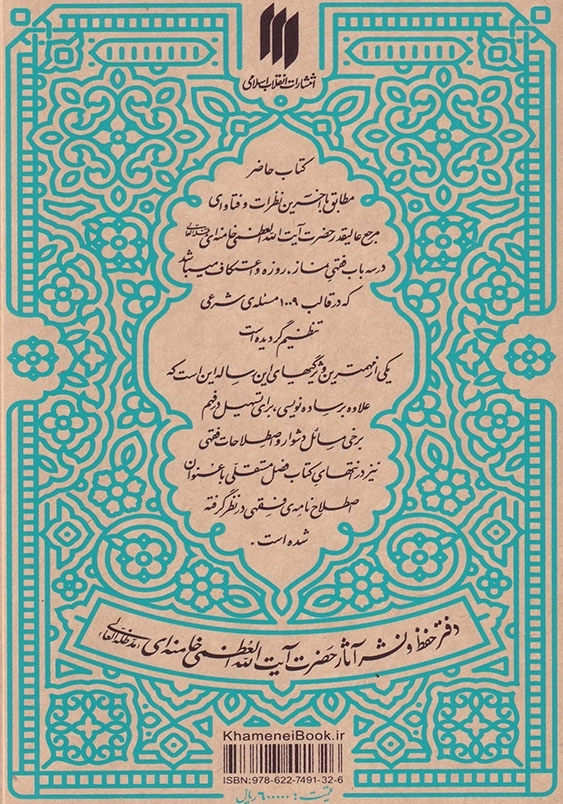 انتشارات انقلاب اسلامی
کتاب حاضر
مطابق با آخرین نظرات و فتاوای
مرجع عالیقدر حضرت آیت الله العظمی خامنه‌ای مدظله‌العالی
در سه باب فقهی نماز، روزه و اعتکاف میباشد
که در قالب ۱۰۰۹ مسئله‌ی شرعی
تنظیم گردیده است
یکی از مهمترین ویژگیهای این رساله این است که
علاوه بر ساده نویسی، برای تسهیل در فهم
برخی مسائل دشوار و اصطلاحات فقهی
نیز در انتهای کتاب فصل مستقلی با عنوان
اصطلاح نامه‌ی فقهی در نظر گرفته
شده است.
دفتر حفظ و نشر آثار حضرت آیت الله العظمی خامنه‌ای مدظله‌العالی
KhameneiBook.ir
ISBN: 978-622-7491-32-6
قیمت: ۶۰۰۰۰۰ ریال